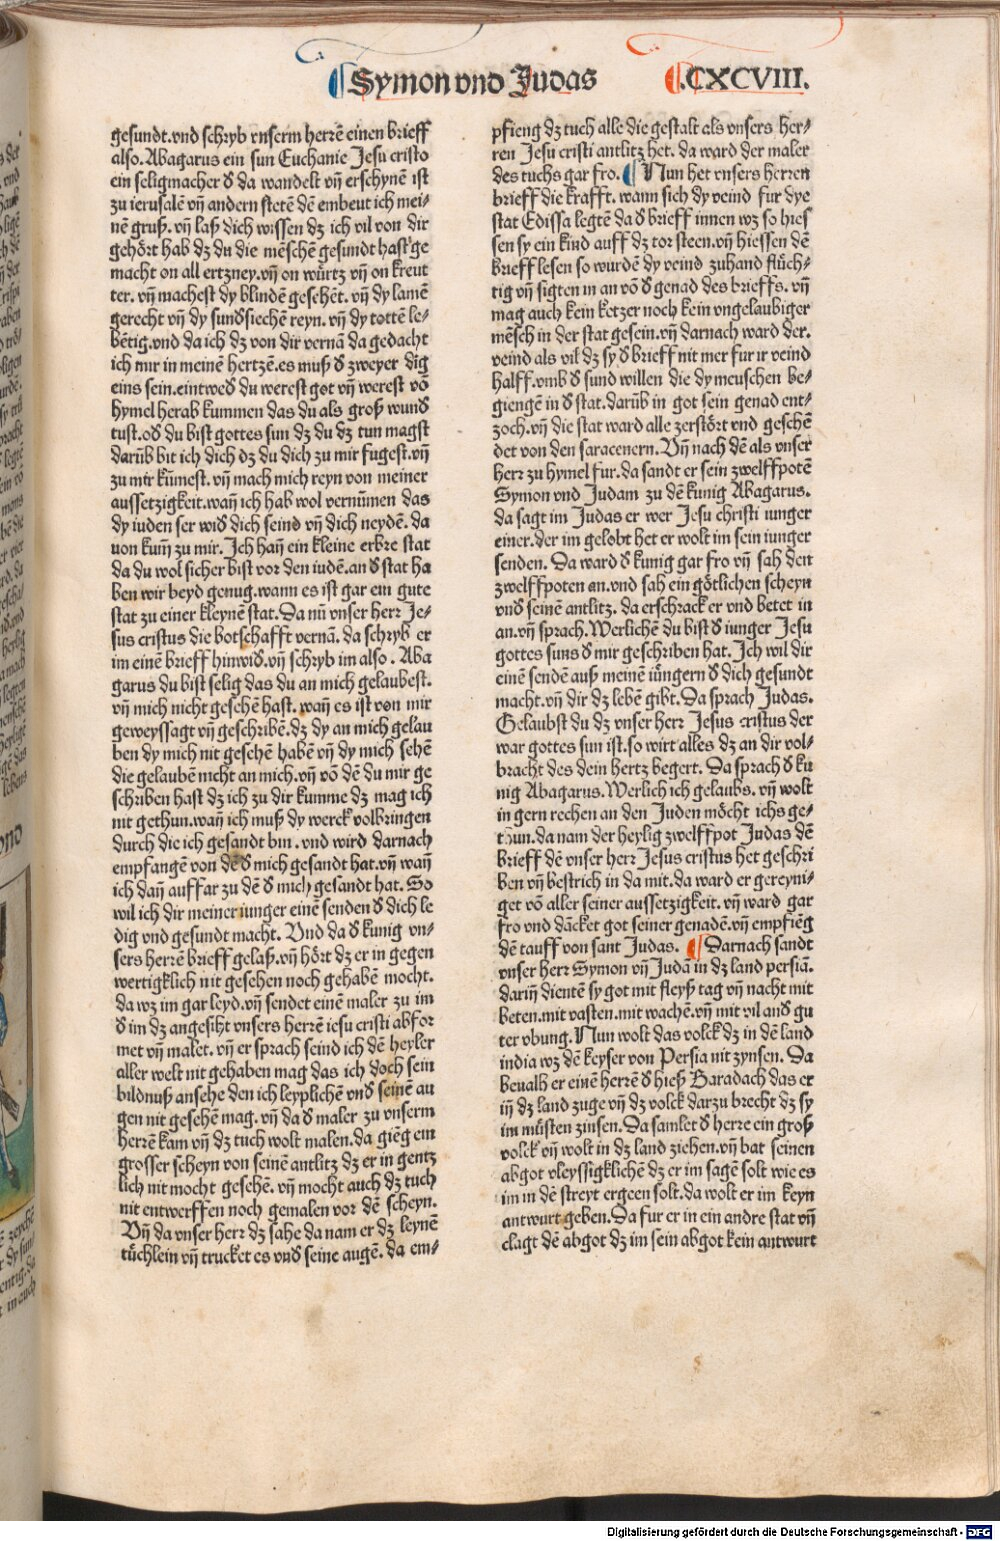 ¶Symon vnd Judas ¶.CXCVIII.
gesundt.vnd schryb vnserm herrē einen brieff
also. Abagarus ein sun Euchanie Jesu cristo
ein seligmacher ď da wandelt vñ erschynē ist
zu ierusalē vñ andern stetē dē embeut ich mei⸗
nē gruß. vñ laß dich wissen dz ich vil von dir
gehört hab dz du die mēschē gesundt hast ge
macht on all ertzney.vñ on würtz vñ on kreut
ter. vñ machest dy blindē gesehēt. vñ dy lamē
gerecht vñ dy sundsiechē reyn. vñ dy tottē le⸗
bētig.vnd da ich dz von dir vernā da gedacht
ich mir in meinē hertzē.es muß ď zweyer dig
eins sein.eintweď du werest got vñ werest vō
hymel herab kummen das du als groß wunď
tust.oď du bist gottes sun dz du dz tun magst
darūb bit ich dich dz du dich zu mir fugest.vñ
zu mir kūmest. vñ mach mich reyn von meiner
aussetzigkeit.wañ ich hab wol vernūmen das
dy iuden ser wiď dich seind vñ dich neydē. da
uon kum̄ zu mir. Ich hañ ein kleine erbre stat
da du wol sicher bist vor den iudē.an ď stat ha
ben wir beyd genug.wann es ist gar ein gute
stat zu einer kleynē stat. Da nū vnser herr Je⸗
sus cristus die botschafft vernā. da schryb er
im einē brieff hinwiď.vñ schryb im also . Aba
garus du bist selig das du an mich gelaubest.
vñ mich nicht gesehē hast. wañ es ist von mir
geweyssagt vñ geschribē.dz dy an mich gelau
ben dy mich nit gesehē habē vñ dy mich sehē
die gelaubē nicht an mich.vñ vō dē du mir ge
schriben hast dz ich zu dir kumme dz mag ich
nit gethun.wañ ich muß dy werck volbringen
durch die ich gesandt bin . vnd wird darnach
empfangē von dē ď mich gesandt hat.vñ wañ
ich dañ auffar zu dē ď mich gesandt hat. So
wil ich dir meiner iunger einē senden ď dich le
dig vnd gesundt macht. Vnd da ď kunig vn⸗
sers herrē brieff gelaß.vñ hört dz er in gegen
wertigklich nit gesehen noch gehabē mocht.
da wz im gar leyd.vñ sendet einē maler zu im
ď im dz angesiht vnsers herrē iesu cristi abfor
met vñ malet. vñ er sprach seind ich dē heyler
aller welt nit gehaben mag das ich doch sein
bildnuß ansehe den ich leyplichē vnď seinē au
gen nit gesehē mag. vñ da ď maler zu vnserm
herrē kam vñ dz tuch wolt malen.da giēg ein
grosser scheyn von seinē antlitz dz er in gentz
lich nit mocht gesehē. vñ mocht auch dz tuch
nit entwerffen noch gemalen vor dē scheyn.
Vñ da vnser herr dz sahe da nam er dz leynē
tüchlein vñ trucket es vnď seine augē. da em⸗
pfieng dz tuch alle die gestalt als vnsers her⸗
ren Jesu cristi antlitz het. da ward der maler
des tuchs gar fro. ¶ Nun het vnsers herren
brieff die krafft. wann sich dy veind fur dye
stat Edissa legtē da ď brieff innen wz so hies
sen sy ein kind auff dz tor steen.vñ hiessen dē
brieff lesen so wurdē dy veind zuhand flüch⸗
tig vñ sigten in an vō ď genad des brieffs. vñ
mag auch kein ketzer noch kein vngelaubiger
mēsch in der stat gesein.vñ darnach ward der.
veind als vil dz sy ď brieff nit mer fur ir veind
halff.vmb ď sund willen die dy meuschen be⸗
giengē in ď stat.darūb in got sein genad ent⸗
zoch.vñ die stat ward alle zerstört vnd geschē
det von den saracenern. Vñ nach dē als vnser
herr zu hymel fur.da sandt er sein zwelffpotē
Symon vnd Judam zu dē kunig Abagarus.
da sagt im Judas er wer Jesu christi iunger
einer.der im gelobt het er wolt im sein iunger
senden. Da ward ď kunig gar fro vñ sah den
zwelffpoten an.vnd sah ein götlichen scheyn
vnď seinē antlitz. da erschrack er vnd betet in
an.vñ sprach. Werlichē du bist ď iunger Jesu
gottes suns ď mir geschriben hat. Ich wil dir
einē sendē auß meinē iüngern ď dich gesundt
macht.vñ dir dz lebē gibt. Da sprach Judas.
Gelaubst du dz vnser herr Jesus cristus der
war gottes sun ist.so wirt alles dz an dir vol⸗
bracht des dein hertz begert. Da sprach ď ku
nig Abagarus. Werlich ich gelaubs. vñ wolt
in gern rechen an den Juden möcht ichs ge⸗
thun.da nam der heylig zwelffpot Judas dē
brieff dē vnser herr Jesus cristus het geschri
ben vñ bestrich in da mit.da ward er gereyni⸗
get vō aller seiner aussetzigkeit. vñ ward gar
fro vnd dācket got seiner genadē.vñ empfiēg
dē tauff von sant Judas. ¶ Darnach sandt
vnser herr Symon vñ Judā in dz land persiā.
dariñ dientē sy got mit fleyß tag vñ nacht mit
beten.mit vasten.mit wachē.vñ mit vil and gu
ter vbung. Nun wolt das volck dz in dē land
india wz dē keyser von Persia nit zynsen. Da
beualh er einē herrē ď hieß Baradach das er
iñ dz land zuge vñ dz volck darzu brecht dz sy
im müsten zinsen. Da samlet ď herre ein groß
volck vñ wolt in dz land ziehen.vñ bat seinen
abgot vleyssigklichē dz er im sagē solt wie es
im in dē streyt ergeen solt.da wolt er im keyn
antwurt geben. Da fur er in ein andre stat vñ
clagt dē abgot dz im sein abgot kein antwurt
Digitalisierung gefördert durch die Deutsche Forschungsgemeinschaft - DFG